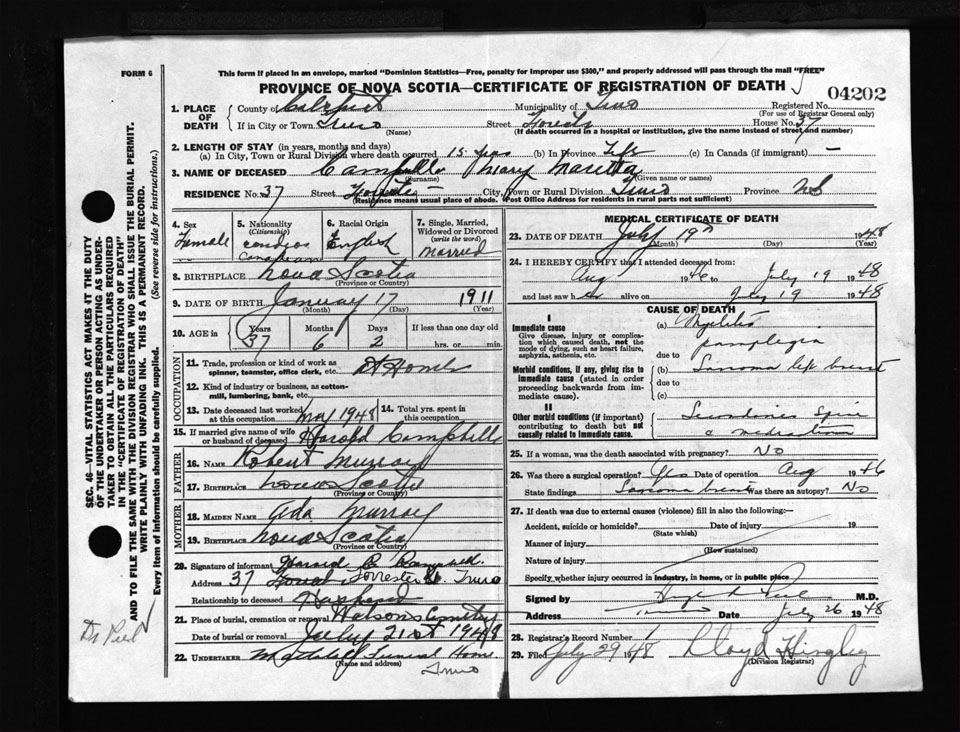 FORM 6
This form if placed in an envelope, marked "Dominion Statistics—Free, penalty for improper use $300," and properly addressed will pass through the mail "FREE"
PROVINCE OF NOVA SCOTIA—CERTIFICATE OF REGISTRATION OF DEATH
04202
1. PLACE OF DEATH
County of Colchester Municipality of Truro Registered No.
(For use of Registrar General only)
If in City or Town Truro Street House No. 37
(Name) (If death occurred in a hospital or institution, give the name instead of street and number)
2. LENGTH OF STAY (in years, months and days)
(a) In City, Town or Rural Division where death occurred 15 yrs (b) In Province Life (c) In Canada (if immigrant) —
3. NAME OF DECEASED Campbell Mary Maretta
(Surname) (Given name or names)
RESIDENCE No. 37 Street City, Town or Rural Division Truro Province NS
(Residence means usual place of abode. Post Office Address for residents in rural parts not sufficient)
4. Sex Female
5. Nationality (Citizenship) Canadian
6. Racial Origin English
7. Single, Married, Widowed or Divorced (write the word) Married
8. BIRTHPLACE Nova Scotia
(Province or Country)
9. DATE OF BIRTH January 17 1911
(Month) (Day) (Year)
10. AGE in Years 37 Months 6 Days 2 If less than one day old hrs. or min.
OCCUPATION
11. Trade, profession or kind of work as spinner, teamster, office clerk, etc. At Home
12. Kind of industry or business, as cotton-mill, lumbering, bank, etc.
13. Date deceased last worked at this occupation May 1948 14. Total yrs. spent in this occupation
15. If married give name of wife or husband of deceased Harold Campbell
FATHER
16. Name Robert Murray
17. BIRTHPLACE Nova Scotia
(Province or Country)
MOTHER
18. MAIDEN NAME Ada Murray
19. BIRTHPLACE Nova Scotia
(Province or Country)
20. Signature of informant Harold C Campbell.
Address 37 Forrester St. Truro
Relationship to deceased Husband
21. Place of burial, cremation or removal Watsons Cemetery
Date of burial or removal July 21st 1948
22. UNDERTAKER Funeral Home
(Name and address) Truro
MEDICAL CERTIFICATE OF DEATH
23. DATE OF DEATH July 19th 1948
(Month) (Day) (Year)
24. I HEREBY CERTIFY that I attended deceased from:
Aug 1946 to July 19 1948
and last saw her alive on July 19 1948
CAUSE OF DEATH
I
Immediate cause
Give disease, injury or complication which caused death, not the mode of dying, such as heart failure, asphyxia, asthenia, etc.
(a) Myelitis
paraplegia
due to
Morbid conditions, if any, giving rise to immediate cause (stated in order proceeding backwards from immediate cause).
(b) Sarcoma left breast
due to
(c)
II
Other morbid conditions (if important) contributing to death but not causally related to immediate cause.
Secondaries Spine
c mediastinum
25. If a woman, was the death associated with pregnancy? No
26. Was there a surgical operation? Yes Date of operation Aug 1946
State findings Sarcoma breast Was there an autopsy? No
27. If death was due to external causes (violence) fill in also the following:—
Accident, suicide or homicide? Date of injury 19
(State which)
Manner of injury
(How sustained)
Nature of injury
Specify whether injury occurred in industry, in home, or in public place
Signed by M.D.
Address Date July 26 1948
28. Registrar's Record Number 1
29. Filed July 29 1948 Lloyd Hingley
(Division Registrar)
SEC. 46—VITAL STATISTICS ACT MAKES IT THE DUTY OF THE UNDERTAKER OR PERSON ACTING AS UNDERTAKER TO OBTAIN ALL THE PARTICULARS REQUIRED IN THE "CERTIFICATE OF REGISTRATION OF DEATH"
AND TO FILE THE SAME WITH THE DIVISION REGISTRAR WHO SHALL ISSUE THE BURIAL PERMIT.
WRITE PLAINLY WITH UNFADING INK. THIS IS A PERMANENT RECORD.
Every item of Information should be carefully supplied. (See reverse side for instructions.)
Dr Peel